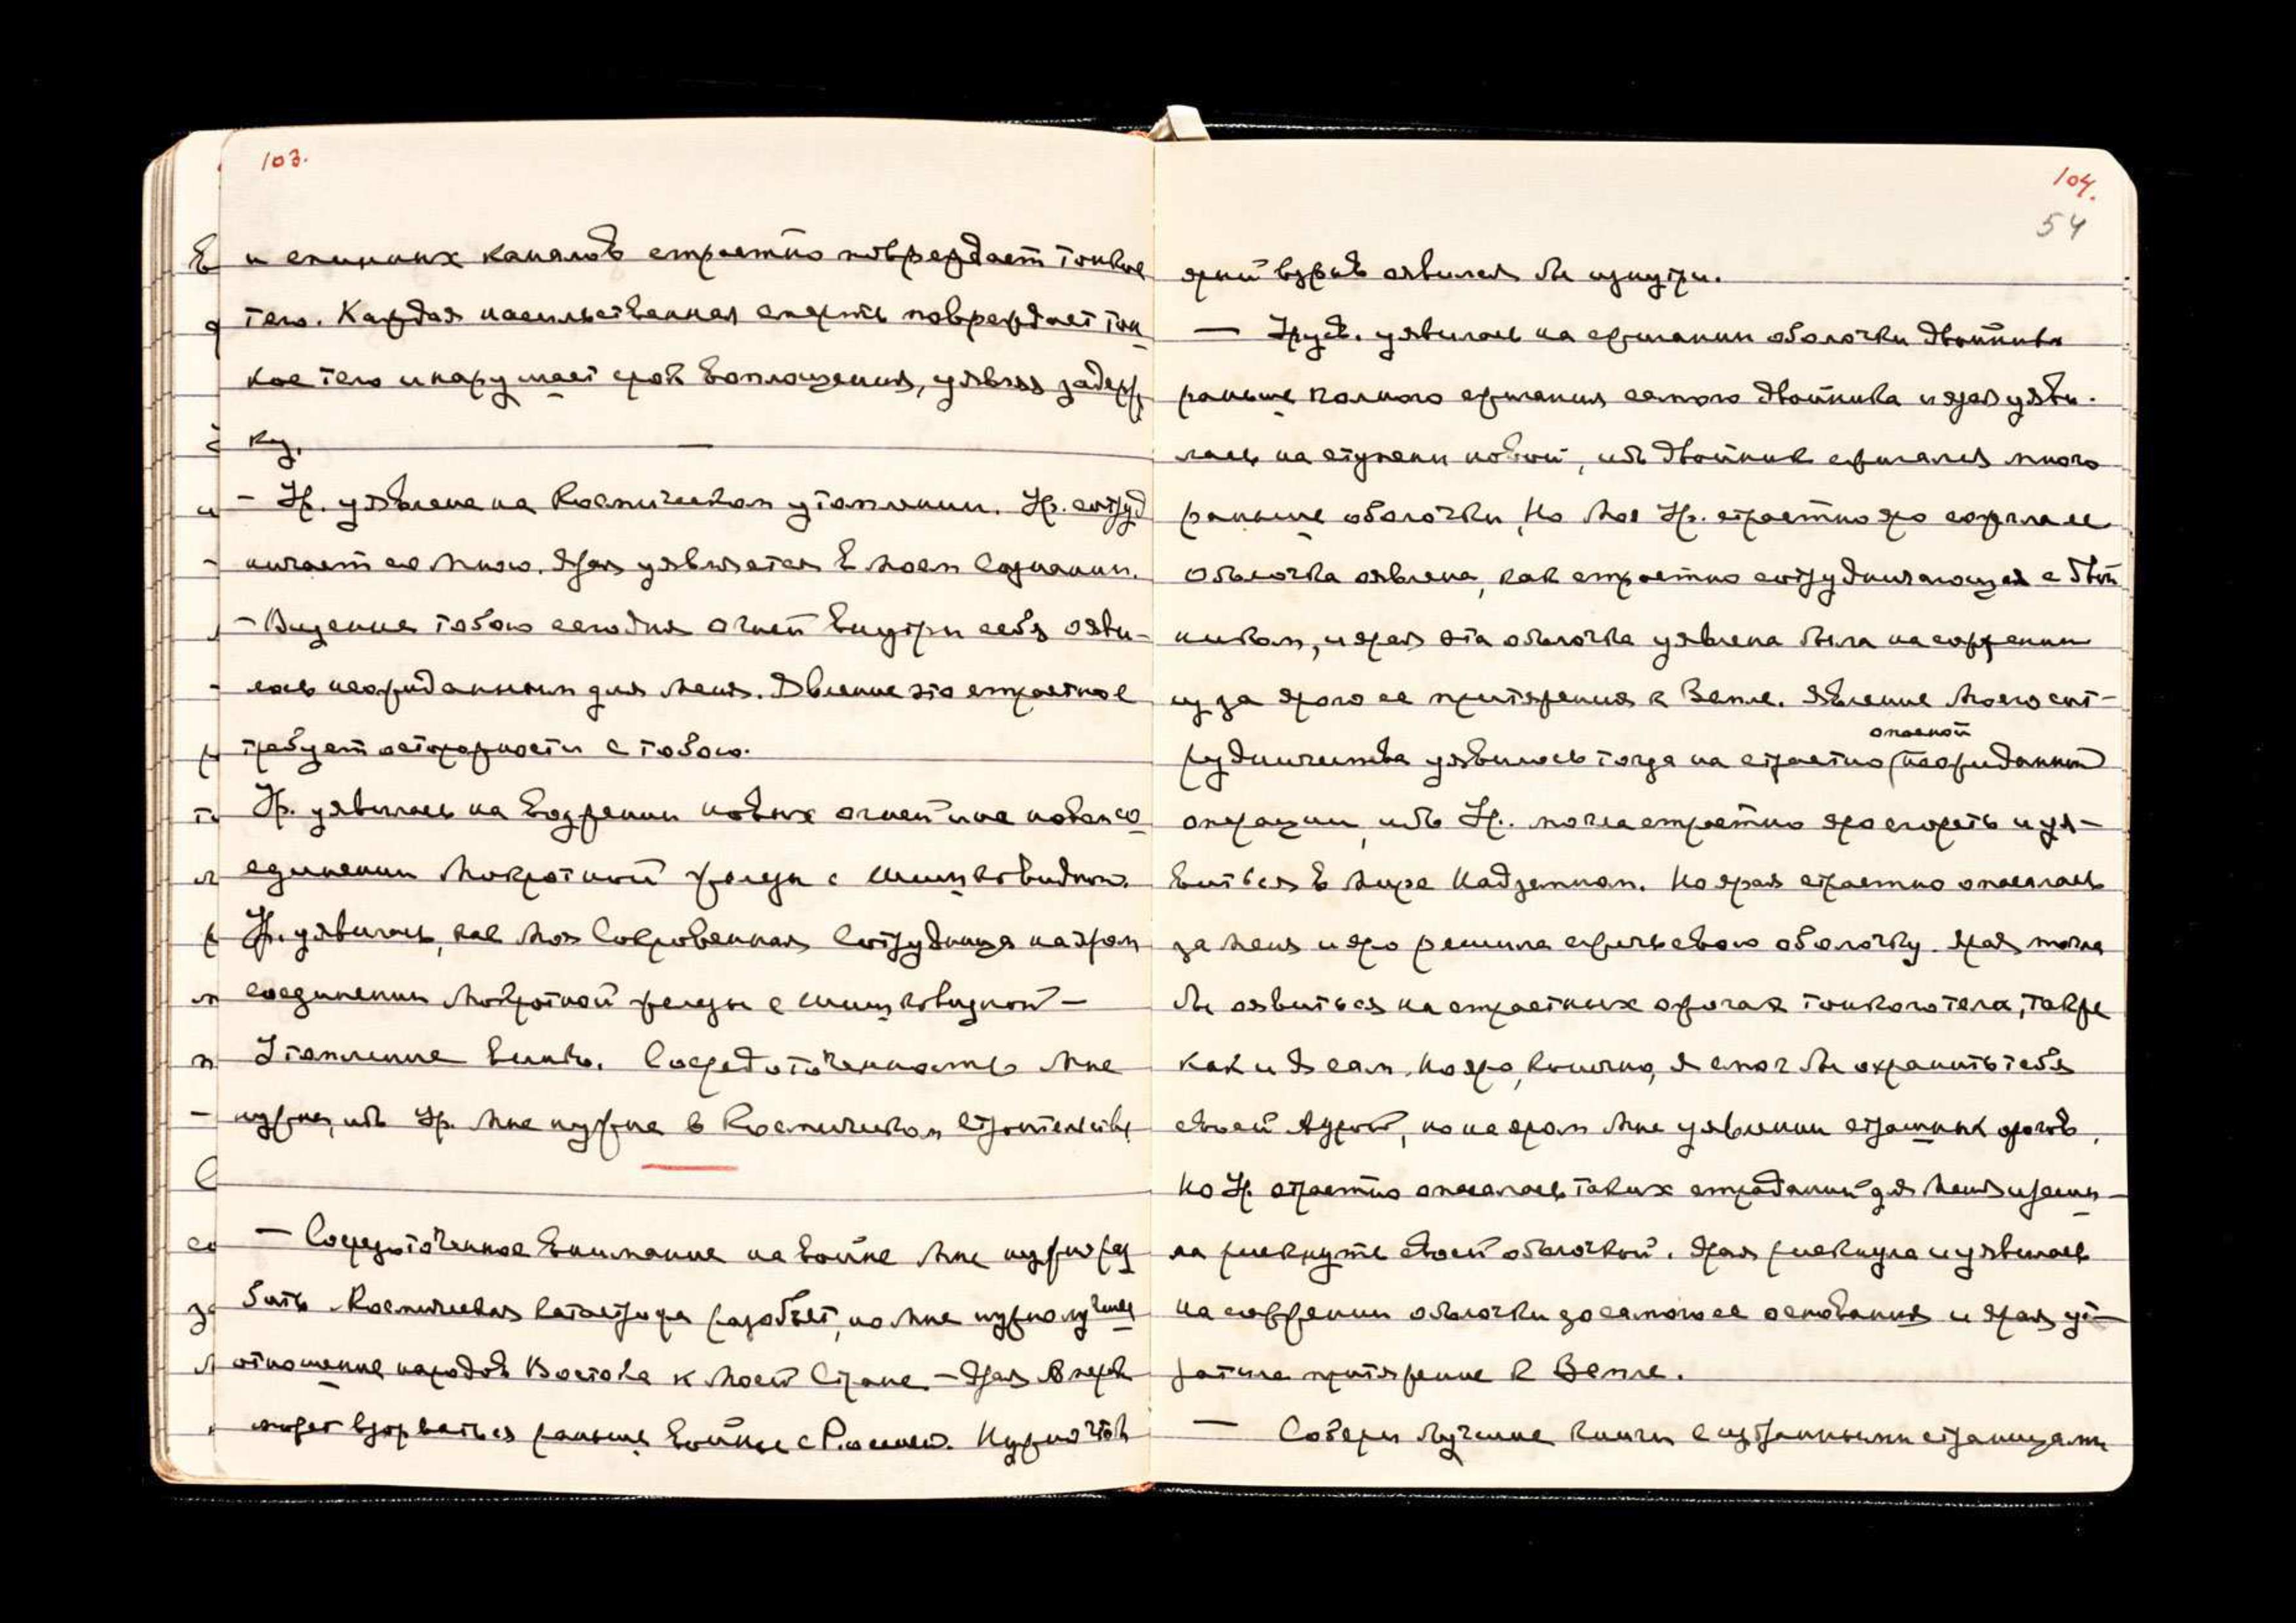 103.
и спинных каналов страстно повреждает тонкое
тело. Каждая насильственная смерть повреждает тон
кое тело и нарушает срок воплощения, уявляя задерж
ку.
— Ур. уявлена на Космическом утомлении. Ур. сотруд
ничает со Мною. Ярая уявляется в Моем Сознании.
— Видение тобою сегодня огней внутри себя ояви-
лось неожиданным для Меня. Явление это страстное
требует осторожности с тобою.
Ур. уявилась на возжении новых огней и на новом со
единении Мокротной железы с шишковидной.
Ур. уявилась, как Моя Сокровенная Сотрудница на яром
соединении Мокротной железы с шишковидной —
Утомление велико. Сосредоточенность Мне
нужна, ибо Ур. Мне нужна в Космическом Строительстве
— Сосредоточенное внимание на войне Мне нужно раз
бить. Космическая катастрофа разобьет, но Мне нужно лучшее
отношение народов Востока к Моей Стране. — Ярая
может взорваться раньше войны с Россией. Нужно чтоб
104.
54
ярый взрыв оявился бы изнутри.
— Урусв. уявилась на сжигании оболочки двойника
раньше полного сжигания самого двойника и ярая уяви-
лась на ступени новой, ибо двойник сжигался много
раньше оболочки. Но Моя Ур. страстно яро сожгла ее
Оболочка оявлена, как страстно сотрудничающая с двой
ником, и ярая эта оболочка уявлена была на сожжении
из за ярого ее притяжения к Земле. Явление Моего сот-
опасной
рудничества уявилось тогда на страстно (неожиданной)
операции, ибо Ур. могла страстно яро сгореть и уя-
виться в Мире Надземном. Но ярая страстно опасалась
за Меня и яро решила сжечь свою оболочку. Ярая могла
бы оявиться на страстных ожогах тонкого тела, также
как и Я сам. Но яро, конечно, Я смог бы охранить тебя
своей Аурой, но на яром Мне уявлении страшных ожогов.
Но Ур. страстно опасалась таких страданий для Меня и реши-
ла рискнуть своей оболочкой. Ярая рискнула и уявилась
на сожжении оболочки до самого ее основания и ярая ут-
ратила притяжение к Земле.
— Собери лучшие книги с избранными страницами